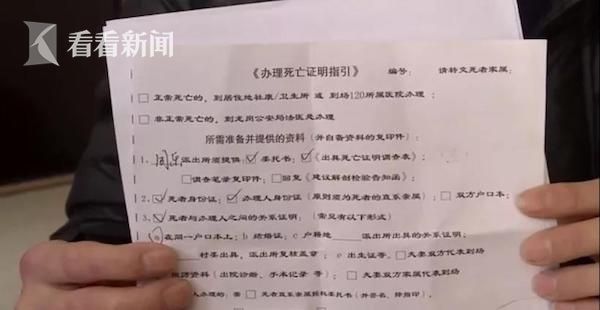 看看新闻
《办理死亡证明指引》 编号： 请转交死者家属：
□正常死亡的，到居住地社康/卫生所 或 到场120所属医院办理；
□非正常死亡的，到龙岗公安局法医处办理
所需准备并提供的资料（并自备资料的复印件）：
1、 派出所须提供：☑委托书；☑《出具死亡证明调查表》；
□调查笔录复印件；□回复《建议解剖检验告知函》；
2、☑死者身份证；☑办理人身份证（原则须为死者的直系亲属）；□双方户口本；
3、☑死者与办理人之间的关系证明：（常见有以下形式）
a在同一户口本上；b 结婚证；c 户籍地____派出所出具的关系证明；
村委出具，派出所复核盖章；e 出生证等。□夫妻双方代表到场
医疗资料（出院诊断、手术记录 等）；□夫妻双方家属代表到场
人办理的：需□死者直系亲属授权委托书（并签名、捺指印）；